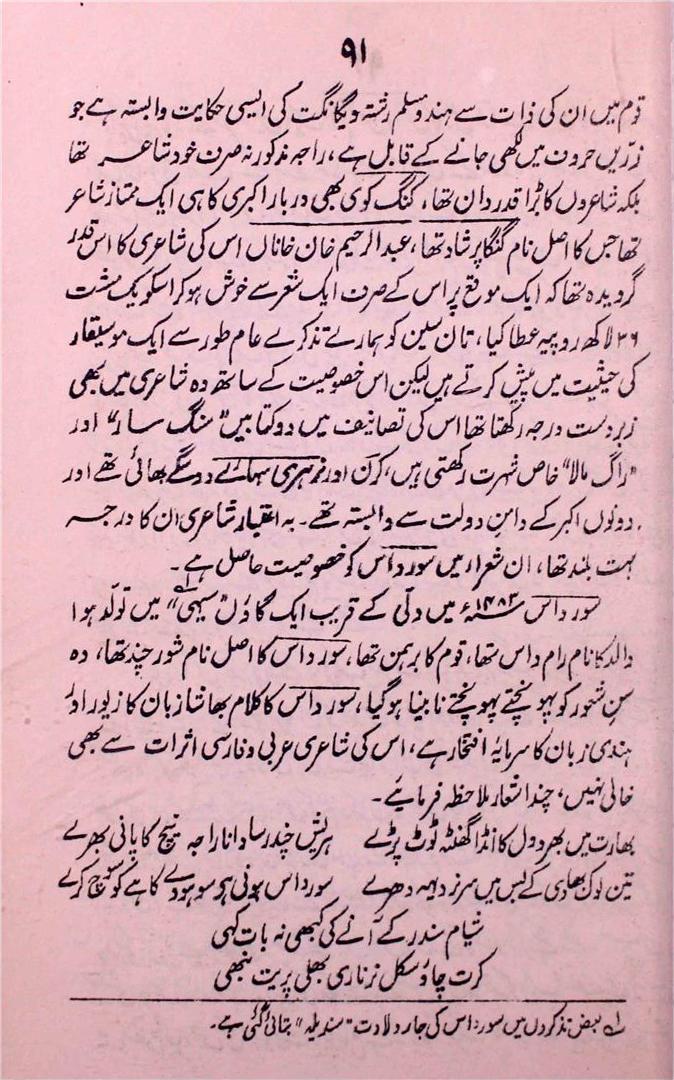 ۹۱
قوم میں ان کی ذات سے ہندو مسلم رشتہ ویگانگت کی ایسی حکایت وابستہ ہے جو
زرّیں حروف میں لکھی جانے کے قابل ہے، راجہ مذکور نہ صرف خود شاعر تھا
بلکہ شاعروں کا بڑا قدردان تھا، گنگ کوی بھی دربار اکبری کا ہی ایک ممتاز شاعر
تھا جس کا اصل نام گنگا پرشاد تھا، عبدالرحیم خان خاناں اس کی شاعری کا اس قدر
گرویدہ تھا کہ ایک موقع پر اس کے صرف ایک شعر سے خوش ہو کر اسکو یک مشت
۳۶ لاکھ روپیہ عطا کیا، تان سین کو ہمارے تذکرے عام طور سے ایک موسیقار
کی حیثیت میں پیش کرتے ہیں لیکن اس خصوصیت کے ساتھ وہ شاعری میں بھی
زبردست درجہ رکھتا تھا اس کی تصانیف میں دو کتابیں "سنگ سار" اور
"راگ مالا" خاص شہرت رکھتی ہیں، کرن اور نرہری سہائے دو سگے بھائی تھے اور
دونوں اکبر کے دامنِ دولت سے وابستہ تھے۔ بہ اعتبار شاعری ان کا درجہ
بہت بلند تھا، ان شعراء میں سورداس کو خصوصیت حاصل ہے۔
سورداس ۱۴۸۳ء میں دلّی کے قریب ایک گاؤں "سیہی"۱؎ میں تولّد ہوا
والد کا نام رام داس تھا، قوم کا برہمن تھا، سورداس کا اصل نام شور چند تھا، وہ
سنِ شعور کو پہونچتے پہونچتے نابینا ہو گیا، سورداس کا کلام بھاشا زبان کا زیور اور
ہندی زبان کا سرمایۂ افتخار ہے، اس کی شاعری عربی و فارسی اثرات سے بھی
خالی نہیں، چند اشعار ملاحظہ فرمائیے۔
بھارت میں بھردول کا انڈا گھنٹہ ٹوٹ پڑے ہریش چندر سا دانا راجہ نیچ کا پانی بھرے
تین لوک بھاوی کے بس میں سر نر دیہہ دھرے سورداس ہونی ہو سو ہووے کاہے کو سوچ کرے
شیام سندر کے آنے کی کبھی نہ بات کہی
کرت چاؤ سکل نر ناری بھلی پریت نبھی
۱؎ بعض تذکروں میں سورداس کی جاء ولادت "سندیلہ" بتائی گئی ہے۔